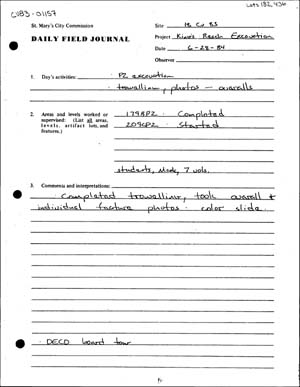 CV83-01157
Lots 182, 436
St. Mary's City Commission
DAILY FIELD JOURNAL
Site 18 Cv 83
Project King's Reach Excavation
Date 6-28-84
Observer
1. Day's activities: · PZ excavation
· trowelling, photos — overalls
2. Areas and levels worked or
supervised: (List all areas,
levels, artifact lots, and
features.)
1798PZ · Completed
2096PZ · Started
students, Mode, 7 vols.
3. Comments and interpretations:
Completed trowelling, took overall +
individual feature photos · color slide.
· DECD board tour